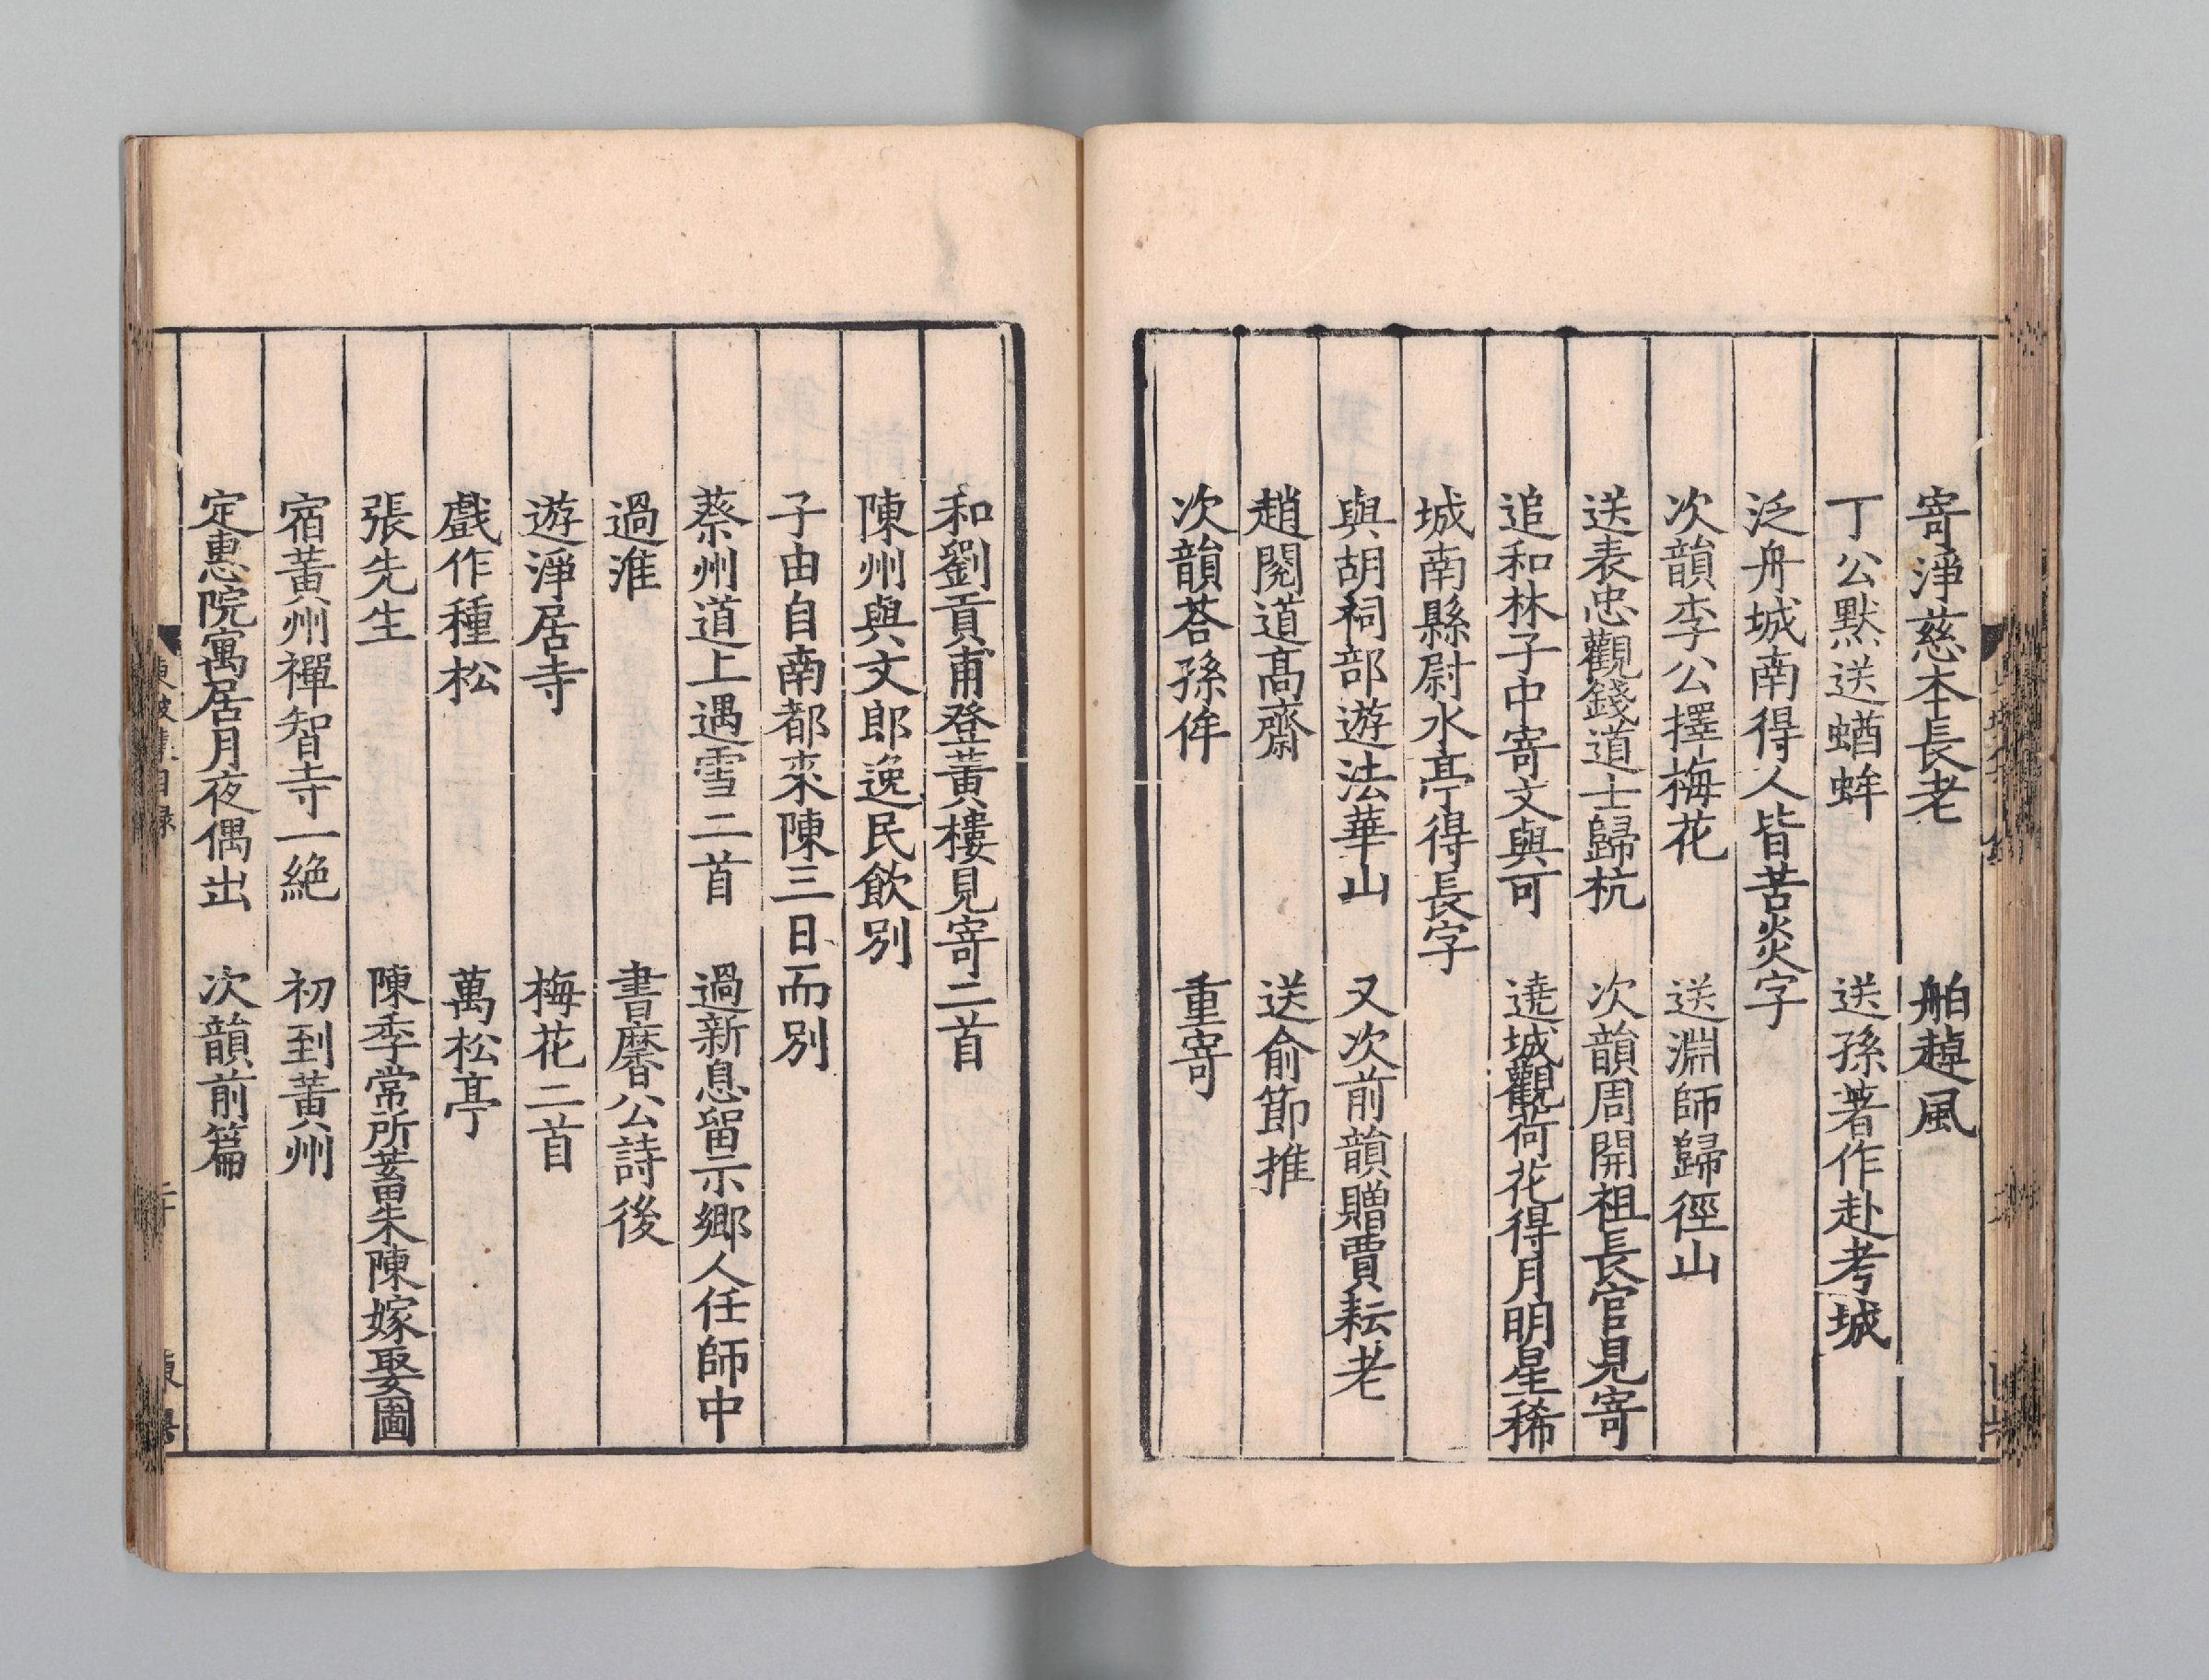 寄淨慈本長老　舶趠風
丁公默送蝤蛑　送孫著作赴考城
泛舟城南得人皆苦炎字
次韻李公擇梅花　送淵師歸徑山
送表忠觀錢道士歸杭　次韻周開祖長官見寄
追和林子中寄文與可　遶城觀荷花得月明星稀
城南縣尉水亭得長字
與胡祠部遊法華山　又次前韻贈賈耘老
趙閱道高齋　送俞節推
次韻荅孫侔　重寄
和劉貢甫登黃樓見寄二首
陳州與文郎逸民飲別
子由自南都來陳三日而別
蔡州道上遇雪二首　過新息留示鄉人任師中
過淮　書麐公詩後
遊淨居寺　梅花二首
戲作種松　萬松亭
張先生　陳季常所畜朱陳嫁娶圖
宿黃州禪智寺一絶　初到黃州
定惠院寓居月夜偶出　次韻前篇